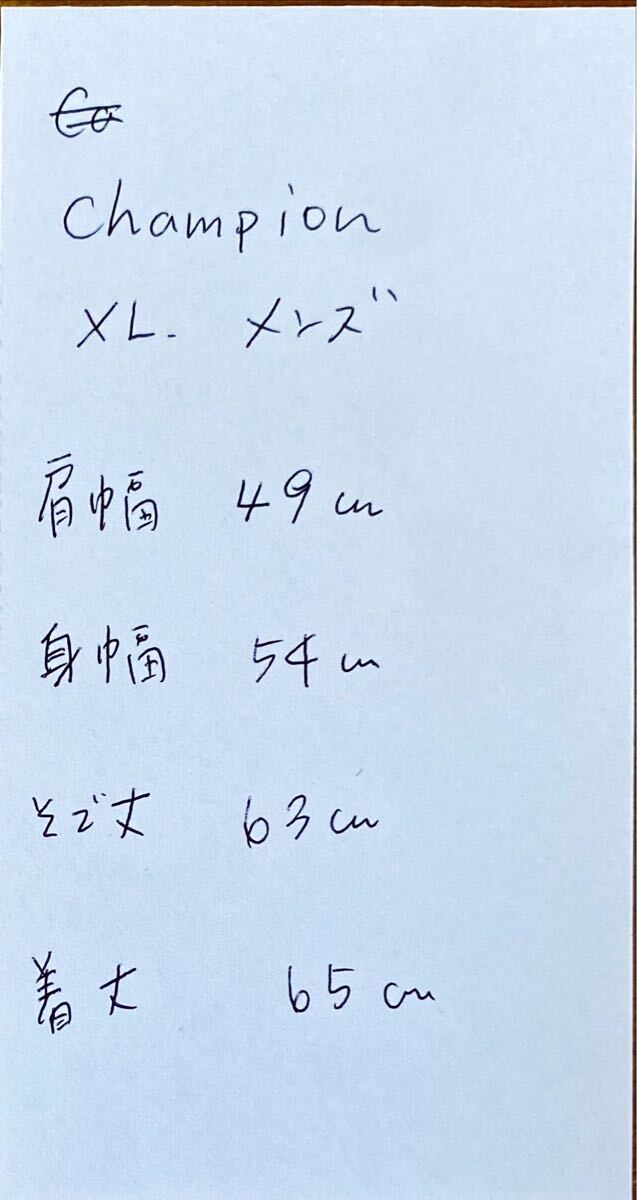 Champion
XL. メンズ
肩幅 49cm
身幅 54cm
そで丈 63cm
着丈 65cm